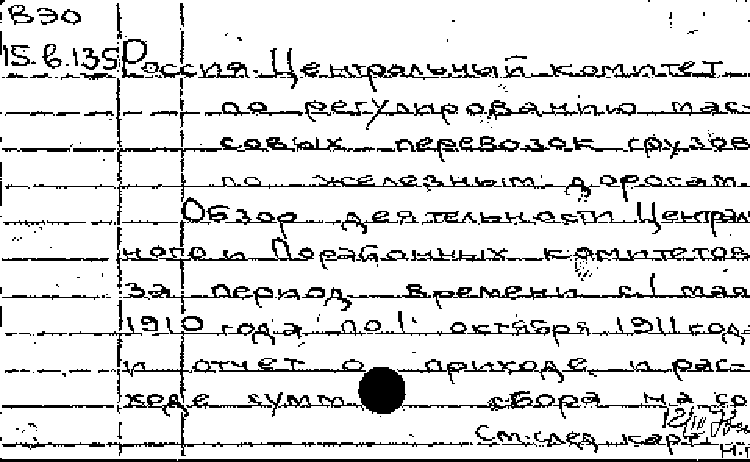 ВЭО
15.6.135 Россия. Центральный комитет
по регулированию мас-
совых перевозок грузов
по железным дорогам.
Обзор деятельности Централ
ного и Порайонных комитетов
за период времени с 1 мая
1910 года по 1 октября 1911 год
и отчет о приходе и рас-
ходе сумм сбора на со
См. след. карт.